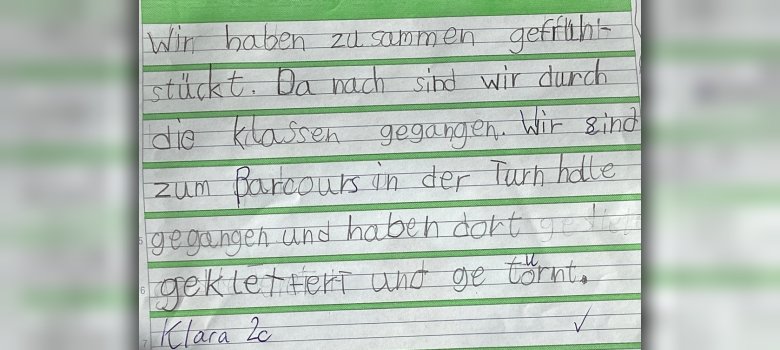 Wir haben zusammen gefrüh-
stückt. Da nach sind wir durch
die Klassen gegangen. Wir sind
zum Parcours in der Turnhalle
gegangen und haben dort
geklettert und ge türnt.
Klara 2c ✓